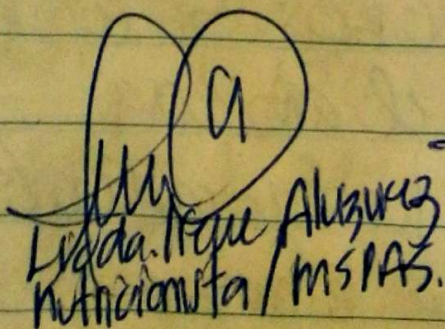 Licda. Irene Alvarez
nutricionista / MSPAS.